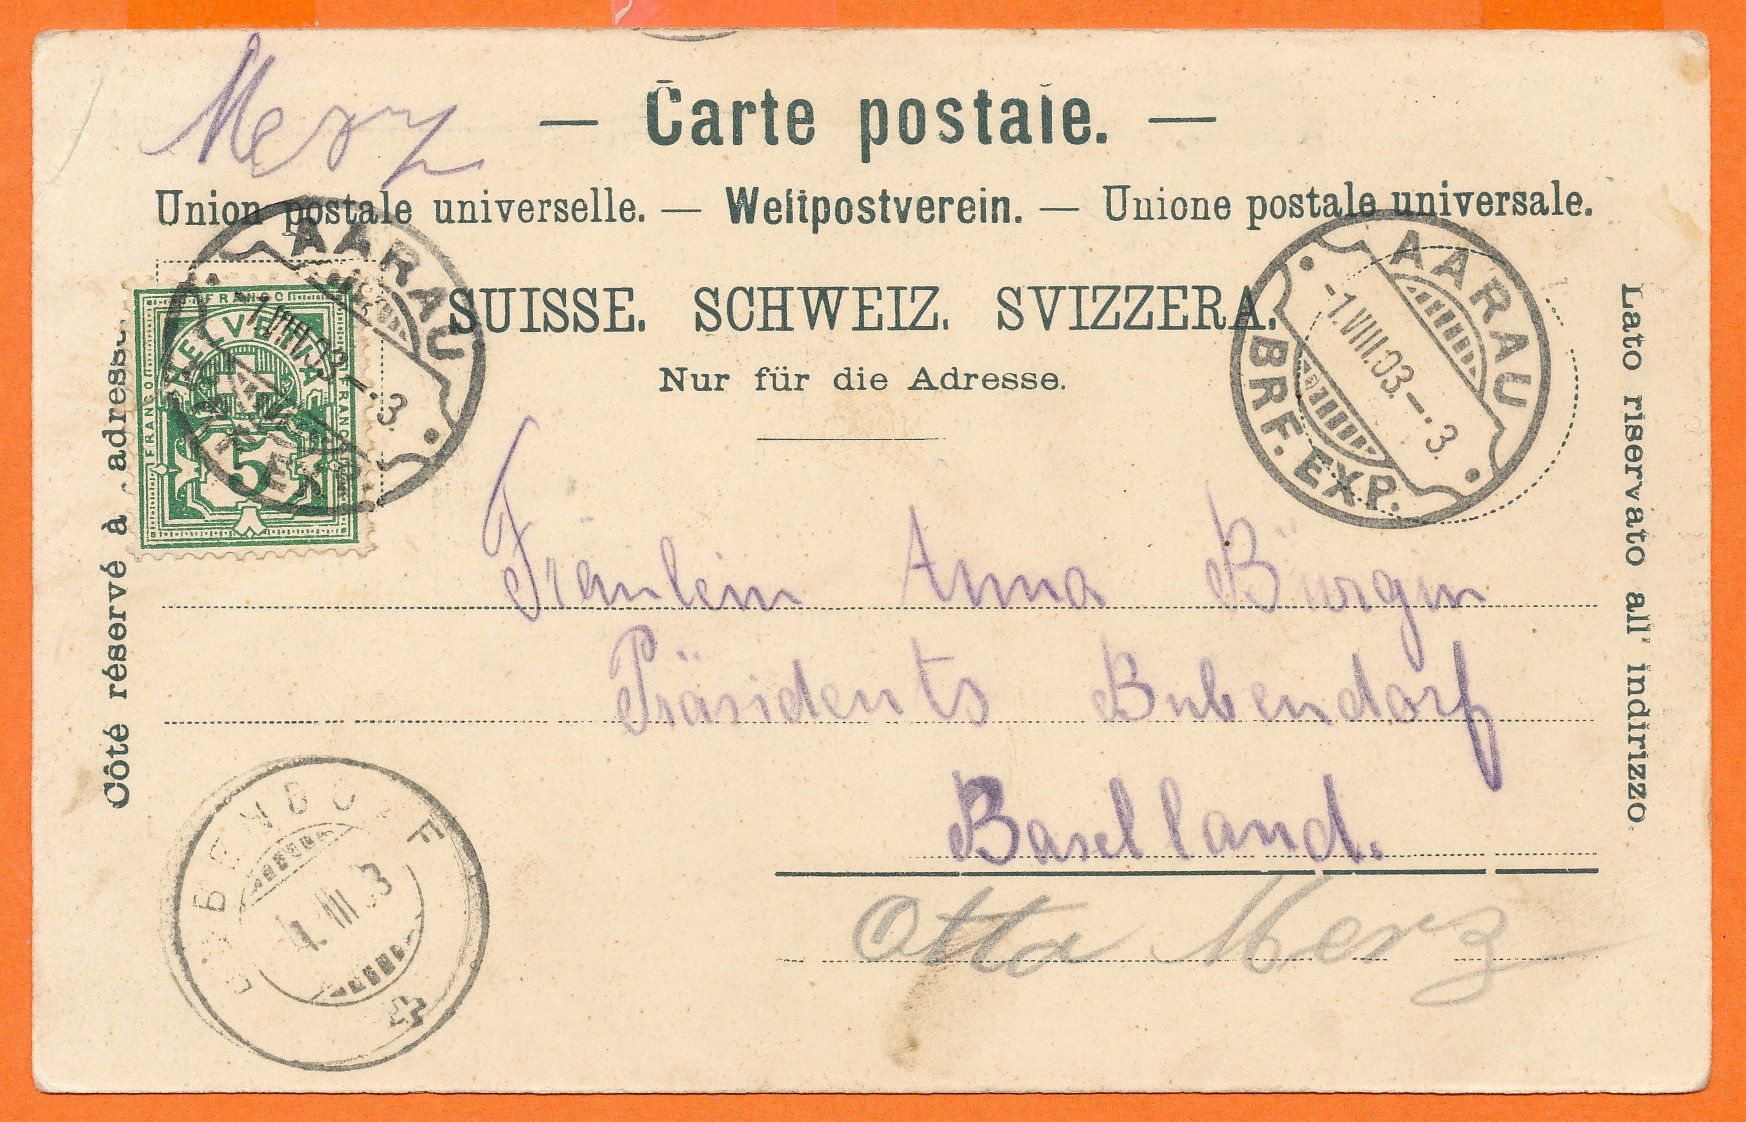 Merz
— Carte postale. —
Union postale universelle. — Weltpostverein. — Unione postale universale.
SUISSE. SCHWEIZ. SVIZZERA.
Nur für die Adresse.
Côté réservé à l'adresse
Lato riservato all' indirizzo.
FRANCO FRANCO FRANCO
HELVETIA
5
AARAU
-1.VIII.03.-.3.
BRF. EXP.
AARAU
-1.VIII.03.-.3.
BRF. EXP.
Fräulein Anna Bürgin
Präsidents Bubendorf
Baselland.
Otto Merz
BUBENDORF
1.VIII 03